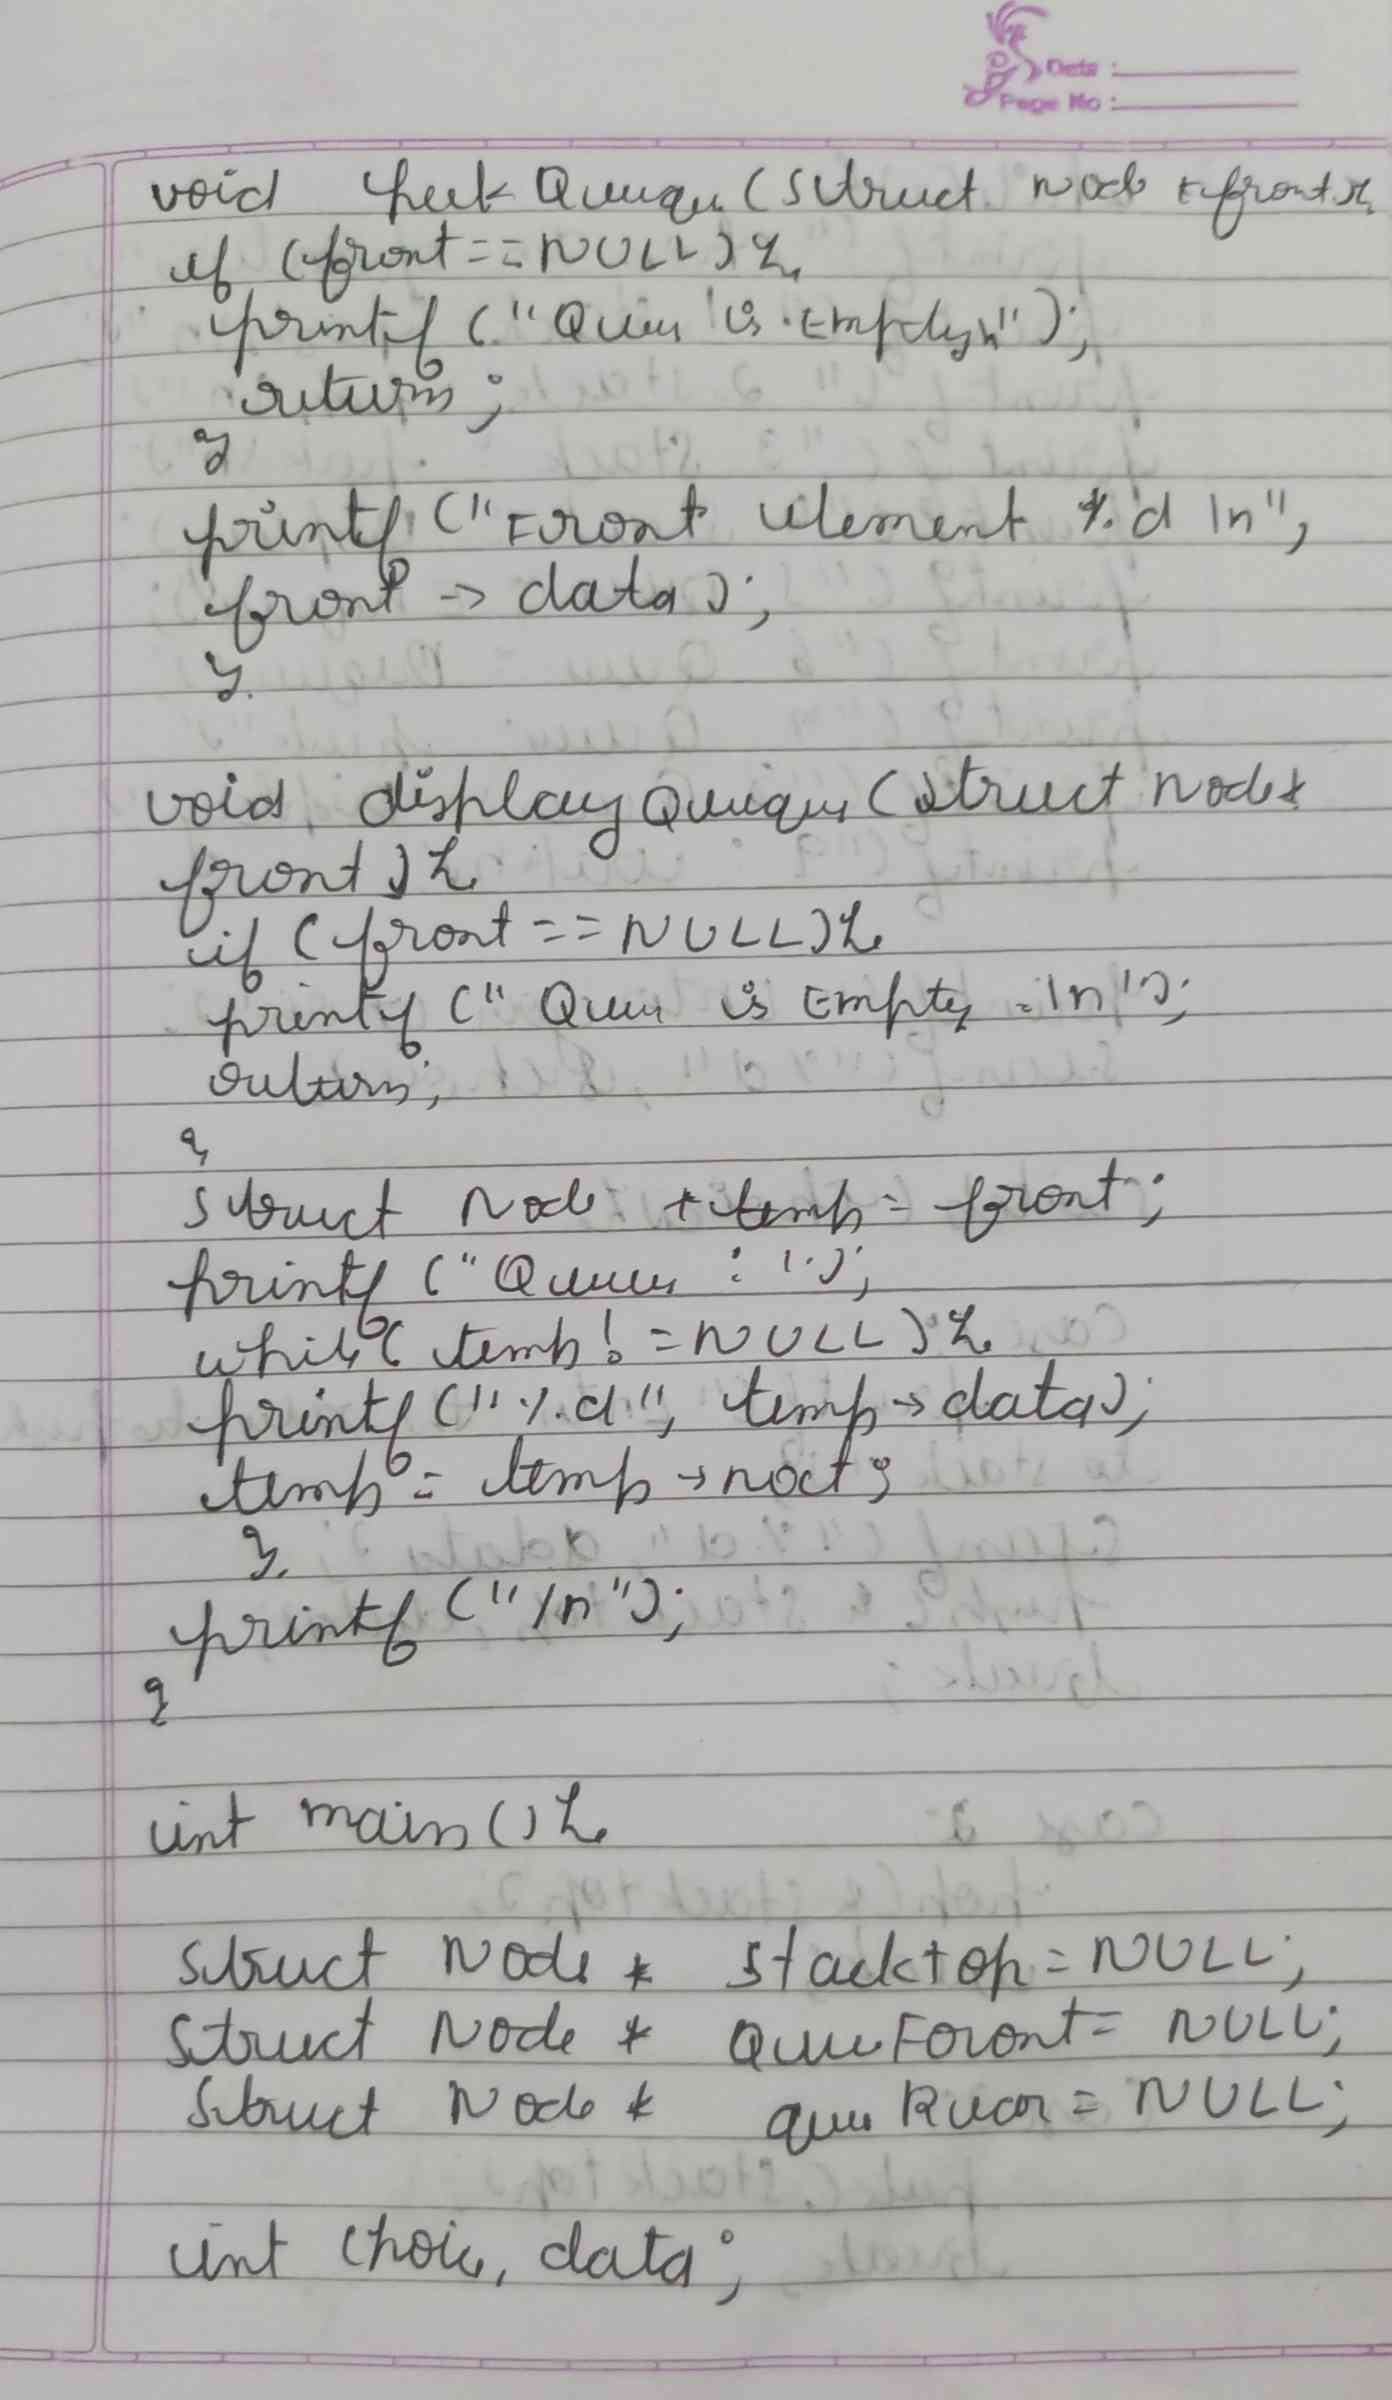 Date :
Page No :
void peek Queuque (struct node *front){
if (front==NULL){
printf ("Queue is Empty\n");
return;
}
printf ("Front element %d \n",
front -> data);
}
void display Queuque (struct node*
front){
if (front==NULL){
printf ("Queue is Empty \n");
return;
}
struct Node *temp= front;
printf ("Queue : ");
while( temp!=NULL){
printf ("%d", temp->data);
temp= temp->next;
}
printf ("/n");
}
int main(){
struct Node * stacktop=NULL;
struct Node * QueueFront= NULL;
struct Node * queueRear= NULL;
int choice, data;